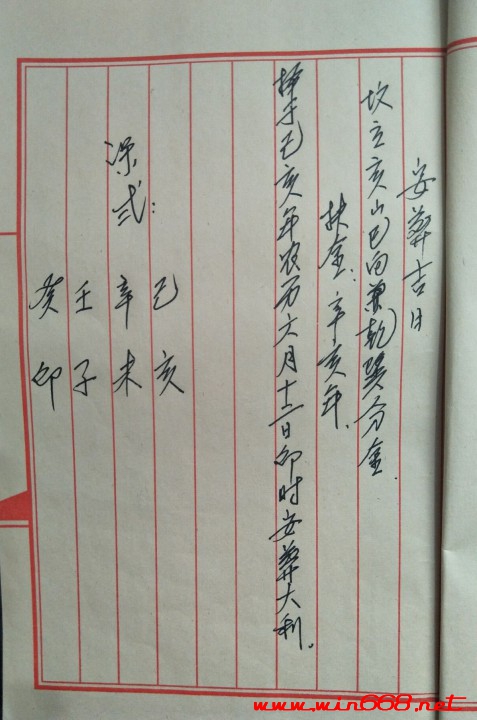 安葬吉日
坟立亥山巳向兼乾巽分金.
扶金:辛亥年.
择于己亥年农历六月十二日卯时安葬大利。
课式:
己亥
辛未
壬子
癸卯
www.win668.net